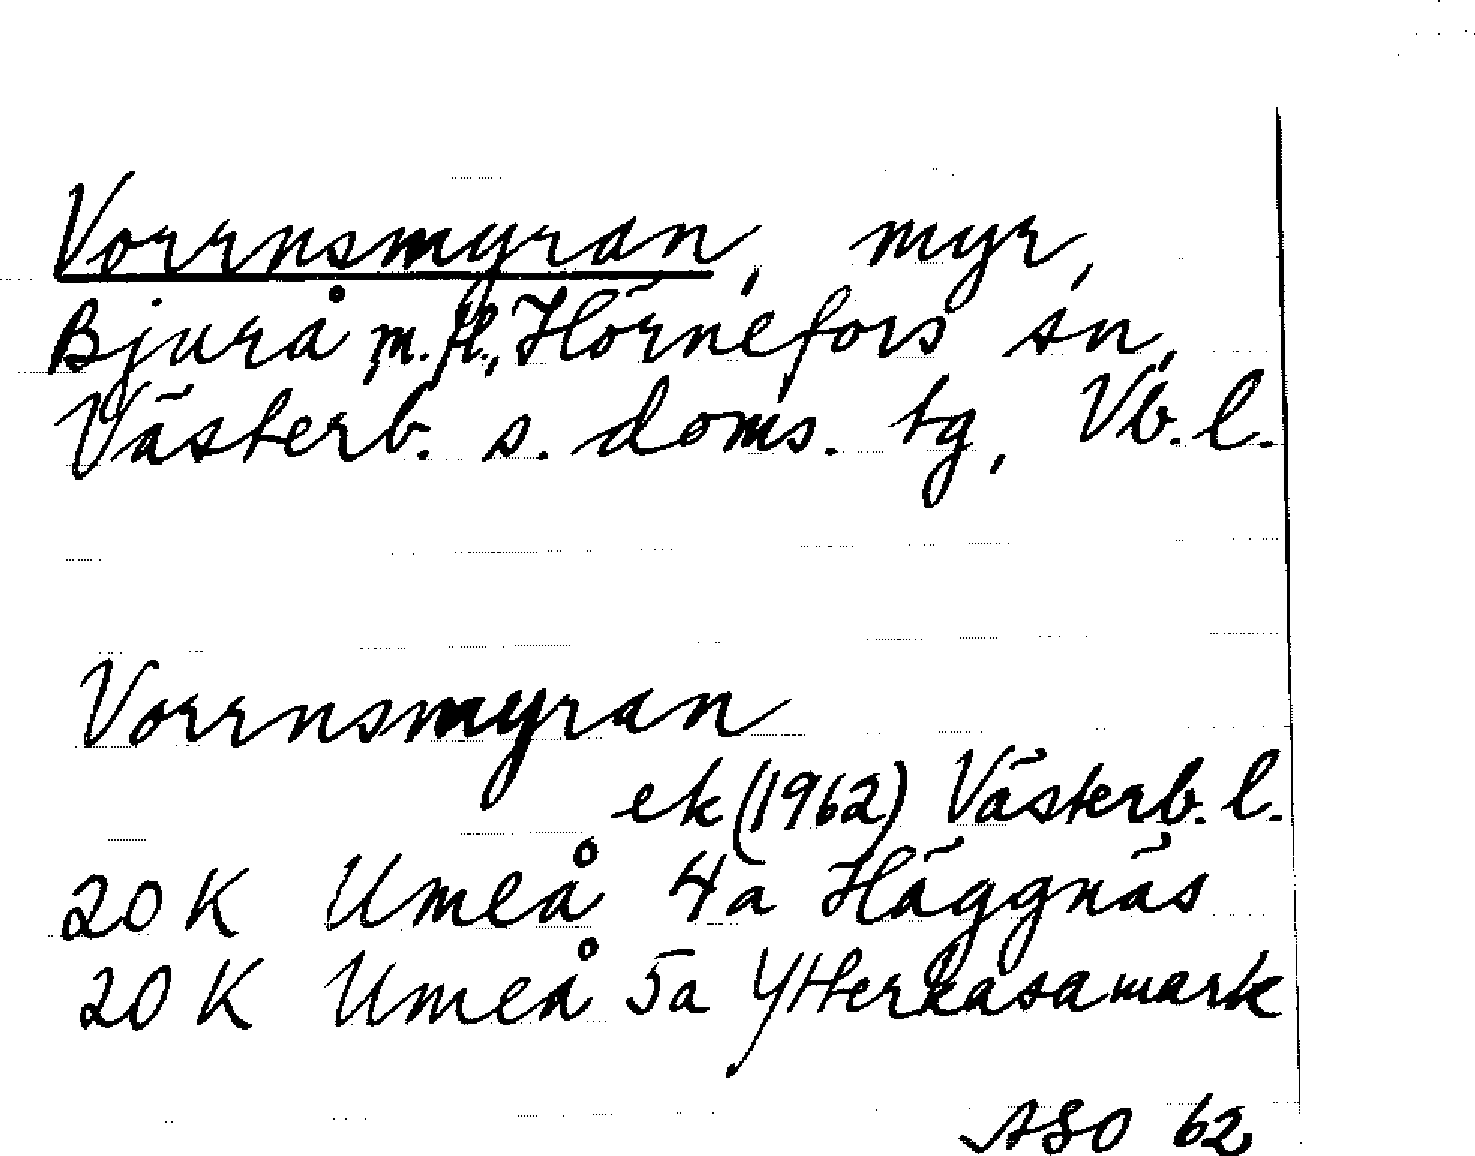 Vorrnsmyran, myr,
Bjurå m.fl., Hörnefors sn,
Västerb. s. doms. tg, Vb. l.
Vorrnsmyran
ek (1962) Västerb. l.
20 K Umeå 4a Häggnäs
20 K Umeå 5a Ytterkasamark
ASO 62